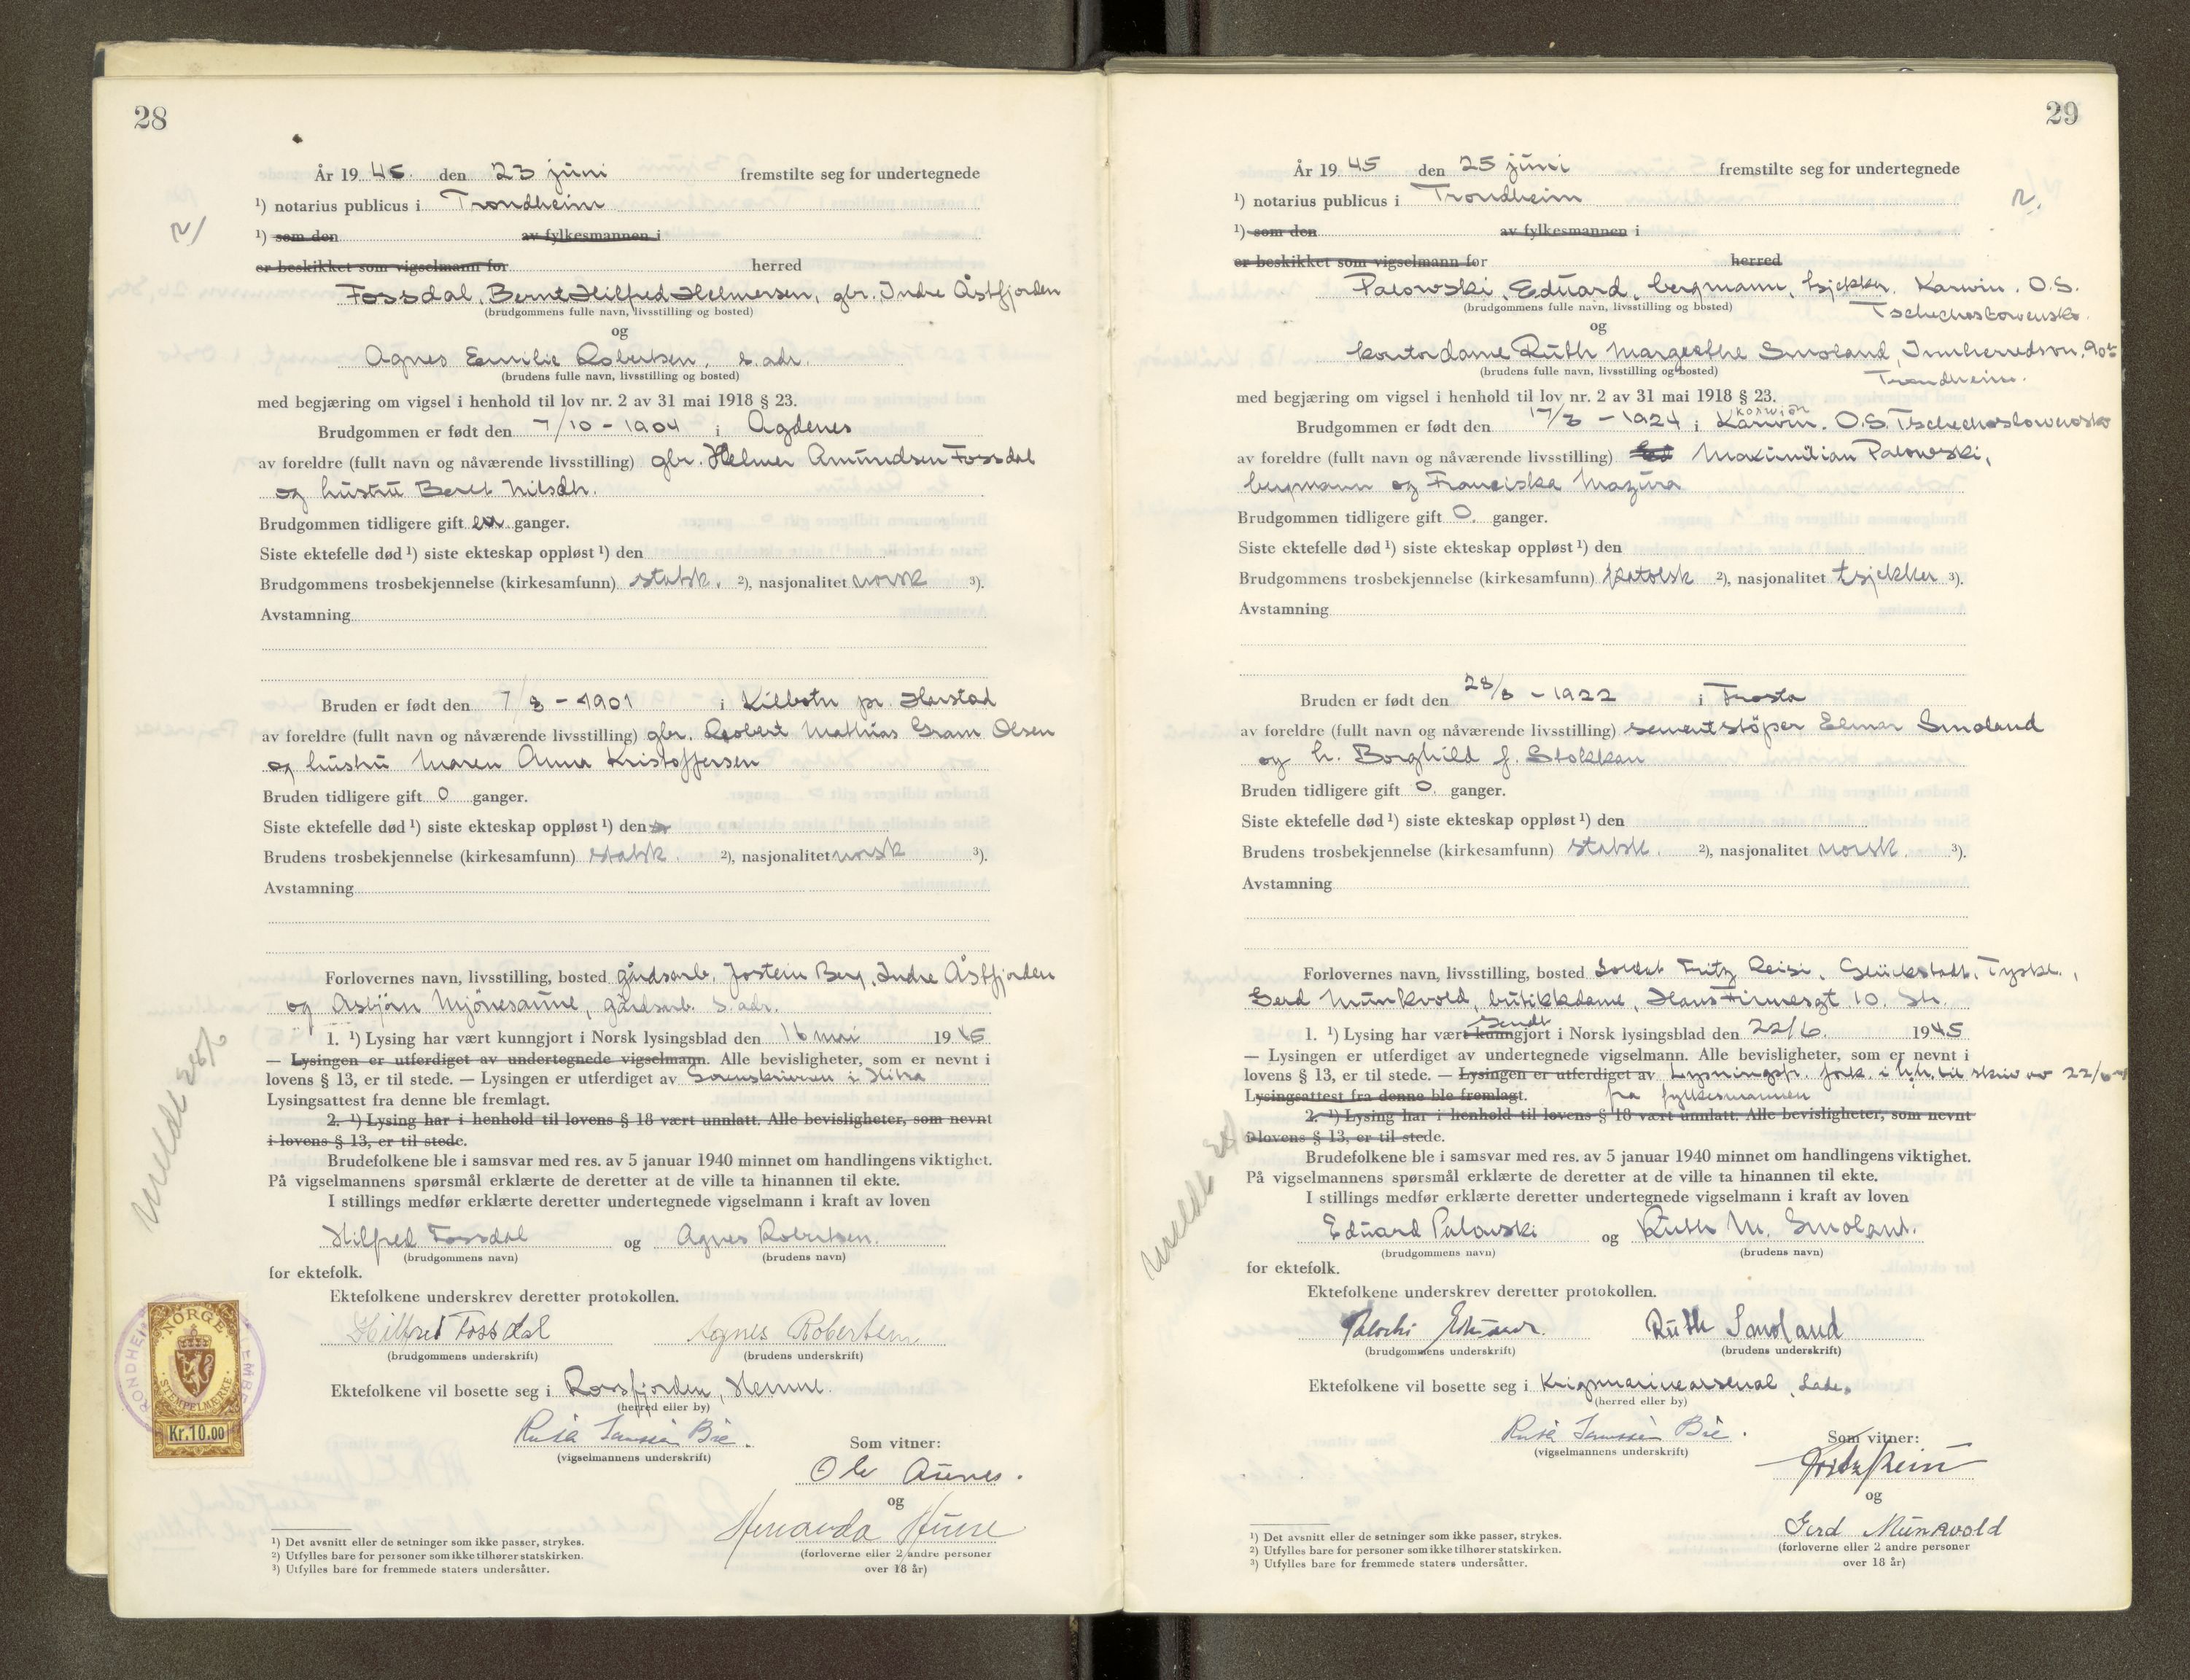 28
År 19 45 den 23 juni fremstilte seg for undertegnede
¹) notarius publicus i Trondheim
¹) som den av fylkesmannen i
er beskikket som vigselmann for herred
Fossdal, Bernt Hilfred Helmersen, gbr. Indre Åstfjorden
(brudgommens fulle navn, livsstilling og bosted)
og
Agnes Emilie Robertsen, s. adr.
(brudens fulle navn, livsstilling og bosted)
med begjæring om vigsel i henhold til lov nr. 2 av 31 mai 1918 § 23.
Brudgommen er født den 7/10 - 1904 i Agdenes
av foreldre (fullt navn og nåværende livsstilling) gbr. Helmer Amundsen Fossdal
og hustru Beret Nilsdtr.
Brudgommen tidligere gift ganger.
Siste ektefelle død ¹) siste ekteskap oppløst ¹) den
Brudgommens trosbekjennelse (kirkesamfunn) statsk. ²), nasjonalitet norsk ³).
Avstamning
Bruden er født den 7/8 - 1901 i Kilbotn pr. Harstad
av foreldre (fullt navn og nåværende livsstilling) gbr. Robert Mathias Gram Olsen
og hustru Maren Anna Kristoffersen
Bruden tidligere gift 0 ganger.
Siste ektefelle død ¹) siste ekteskap oppløst ¹) den
Brudens trosbekjennelse (kirkesamfunn) statsk. ²), nasjonalitet norsk ³).
Avstamning
Forlovernes navn, livsstilling, bosted gårdsarb. Jostein Berg, Indre Åstfjorden
og Asbjörn Mjönesaune, gårdsarb. s. adr.
1. ¹) Lysing har vært kunngjort i Norsk lysingsblad den 16 mai 19 45
— Lysingen er utferdiget av undertegnede vigselmann. Alle bevisligheter, som er nevnt i
lovens § 13, er til stede. — Lysingen er utferdiget av Sorenskriveren i Hitra
Lysingsattest fra denne ble fremlagt.
2. ¹) Lysing har i henhold til lovens § 18 vært unnlatt. Alle bevisligheter, som nevnt
i lovens § 13, er til stede.
Brudefolkene ble i samsvar med res. av 5 januar 1940 minnet om handlingens viktighet.
På vigselmannens spørsmål erklærte de deretter at de ville ta hinannen til ekte.
I stillings medfør erklærte deretter undertegnede vigselmann i kraft av loven
Hilfred Fossdal og Agnes Robertsen.
(brudgommens navn) (brudens navn)
for ektefolk.
Ektefolkene underskrev deretter protokollen.
Hilfred Fossdal Agnes Robertsen
(brudgommens underskrift) (brudens underskrift)
Ektefolkene vil bosette seg i Rossfjorden, Hemne.
(herred eller by)
(vigselmannens underskrift)
Som vitner:
Ole Aunes.
og
(forloverne eller 2 andre personer
over 18 år)
¹) Det avsnitt eller de setninger som ikke passer, strykes.
²) Utfylles bare for personer som ikke tilhører statskirken.
³) Utfylles bare for fremmede staters undersåtter.
Meldt
NORGE
STEMPELMERKE
Kr.10.00
29
År 19 45 den 25 juni fremstilte seg for undertegnede
¹) notarius publicus i Trondheim
¹) som den av fylkesmannen i
er beskikket som vigselmann for herred
Palowski, Eduard, bergmann, tsjekker. Karwin. O.S.
(brudgommens fulle navn, livsstilling og bosted) Tschechoslowenske.
og
kontordame Ruth Margrethe Smoland, Innherredsvn. 90
(brudens fulle navn, livsstilling og bosted) Trondheim.
med begjæring om vigsel i henhold til lov nr. 2 av 31 mai 1918 § 23.
Brudgommen er født den 17/3 - 1924 i Karwin. O.S. Tschechoslowenske
av foreldre (fullt navn og nåværende livsstilling) Maximilian Palowski,
bergmann og Franciska Mazura
Brudgommen tidligere gift 0. ganger.
Siste ektefelle død ¹) siste ekteskap oppløst ¹) den
Brudgommens trosbekjennelse (kirkesamfunn) katolsk ²), nasjonalitet tsjekker ³).
Avstamning
Bruden er født den 28/8 - 1922 i Frosta
av foreldre (fullt navn og nåværende livsstilling) sementstöper Elmar Smoland
og h. Borghild f. Stokkan
Bruden tidligere gift 0. ganger.
Siste ektefelle død ¹) siste ekteskap oppløst ¹) den
Brudens trosbekjennelse (kirkesamfunn) statsk. ²), nasjonalitet norsk. ³).
Avstamning
Forlovernes navn, livsstilling, bosted Soldat Fritz Reisi, Glückstadt, Tyskl.,
Gerd Munkvold, butikkdame, Hans Finnesgt 10. Th.
1. ¹) Lysing har vært kunngjort sendt i Norsk lysingsblad den 22/6. 1945
— Lysingen er utferdiget av undertegnede vigselmann. Alle bevisligheter, som er nevnt i
lovens § 13, er til stede. — Lysingen er utferdiget av Lysningsfr. fork. i h.h. til skriv av 22/6
Lysingsattest fra denne ble fremlagt. fra fylkesmannen
2. ¹) Lysing har i henhold til lovens § 18 vært unnlatt. Alle bevisligheter, som nevnt
i lovens § 13, er til stede.
Brudefolkene ble i samsvar med res. av 5 januar 1940 minnet om handlingens viktighet.
På vigselmannens spørsmål erklærte de deretter at de ville ta hinannen til ekte.
I stillings medfør erklærte deretter undertegnede vigselmann i kraft av loven
Eduard Palowski og Ruth M. Smoland.
(brudgommens navn) (brudens navn)
for ektefolk.
Ektefolkene underskrev deretter protokollen.
Ruth Smoland
(brudgommens underskrift) (brudens underskrift)
Ektefolkene vil bosette seg i Krigsmarinearsenal, Lade.
(herred eller by)
(vigselmannens underskrift)
Som vitner:
og
Gerd Munkvold
(forloverne eller 2 andre personer
over 18 år)
¹) Det avsnitt eller de setninger som ikke passer, strykes.
²) Utfylles bare for personer som ikke tilhører statskirken.
³) Utfylles bare for fremmede staters undersåtter.
Meldt